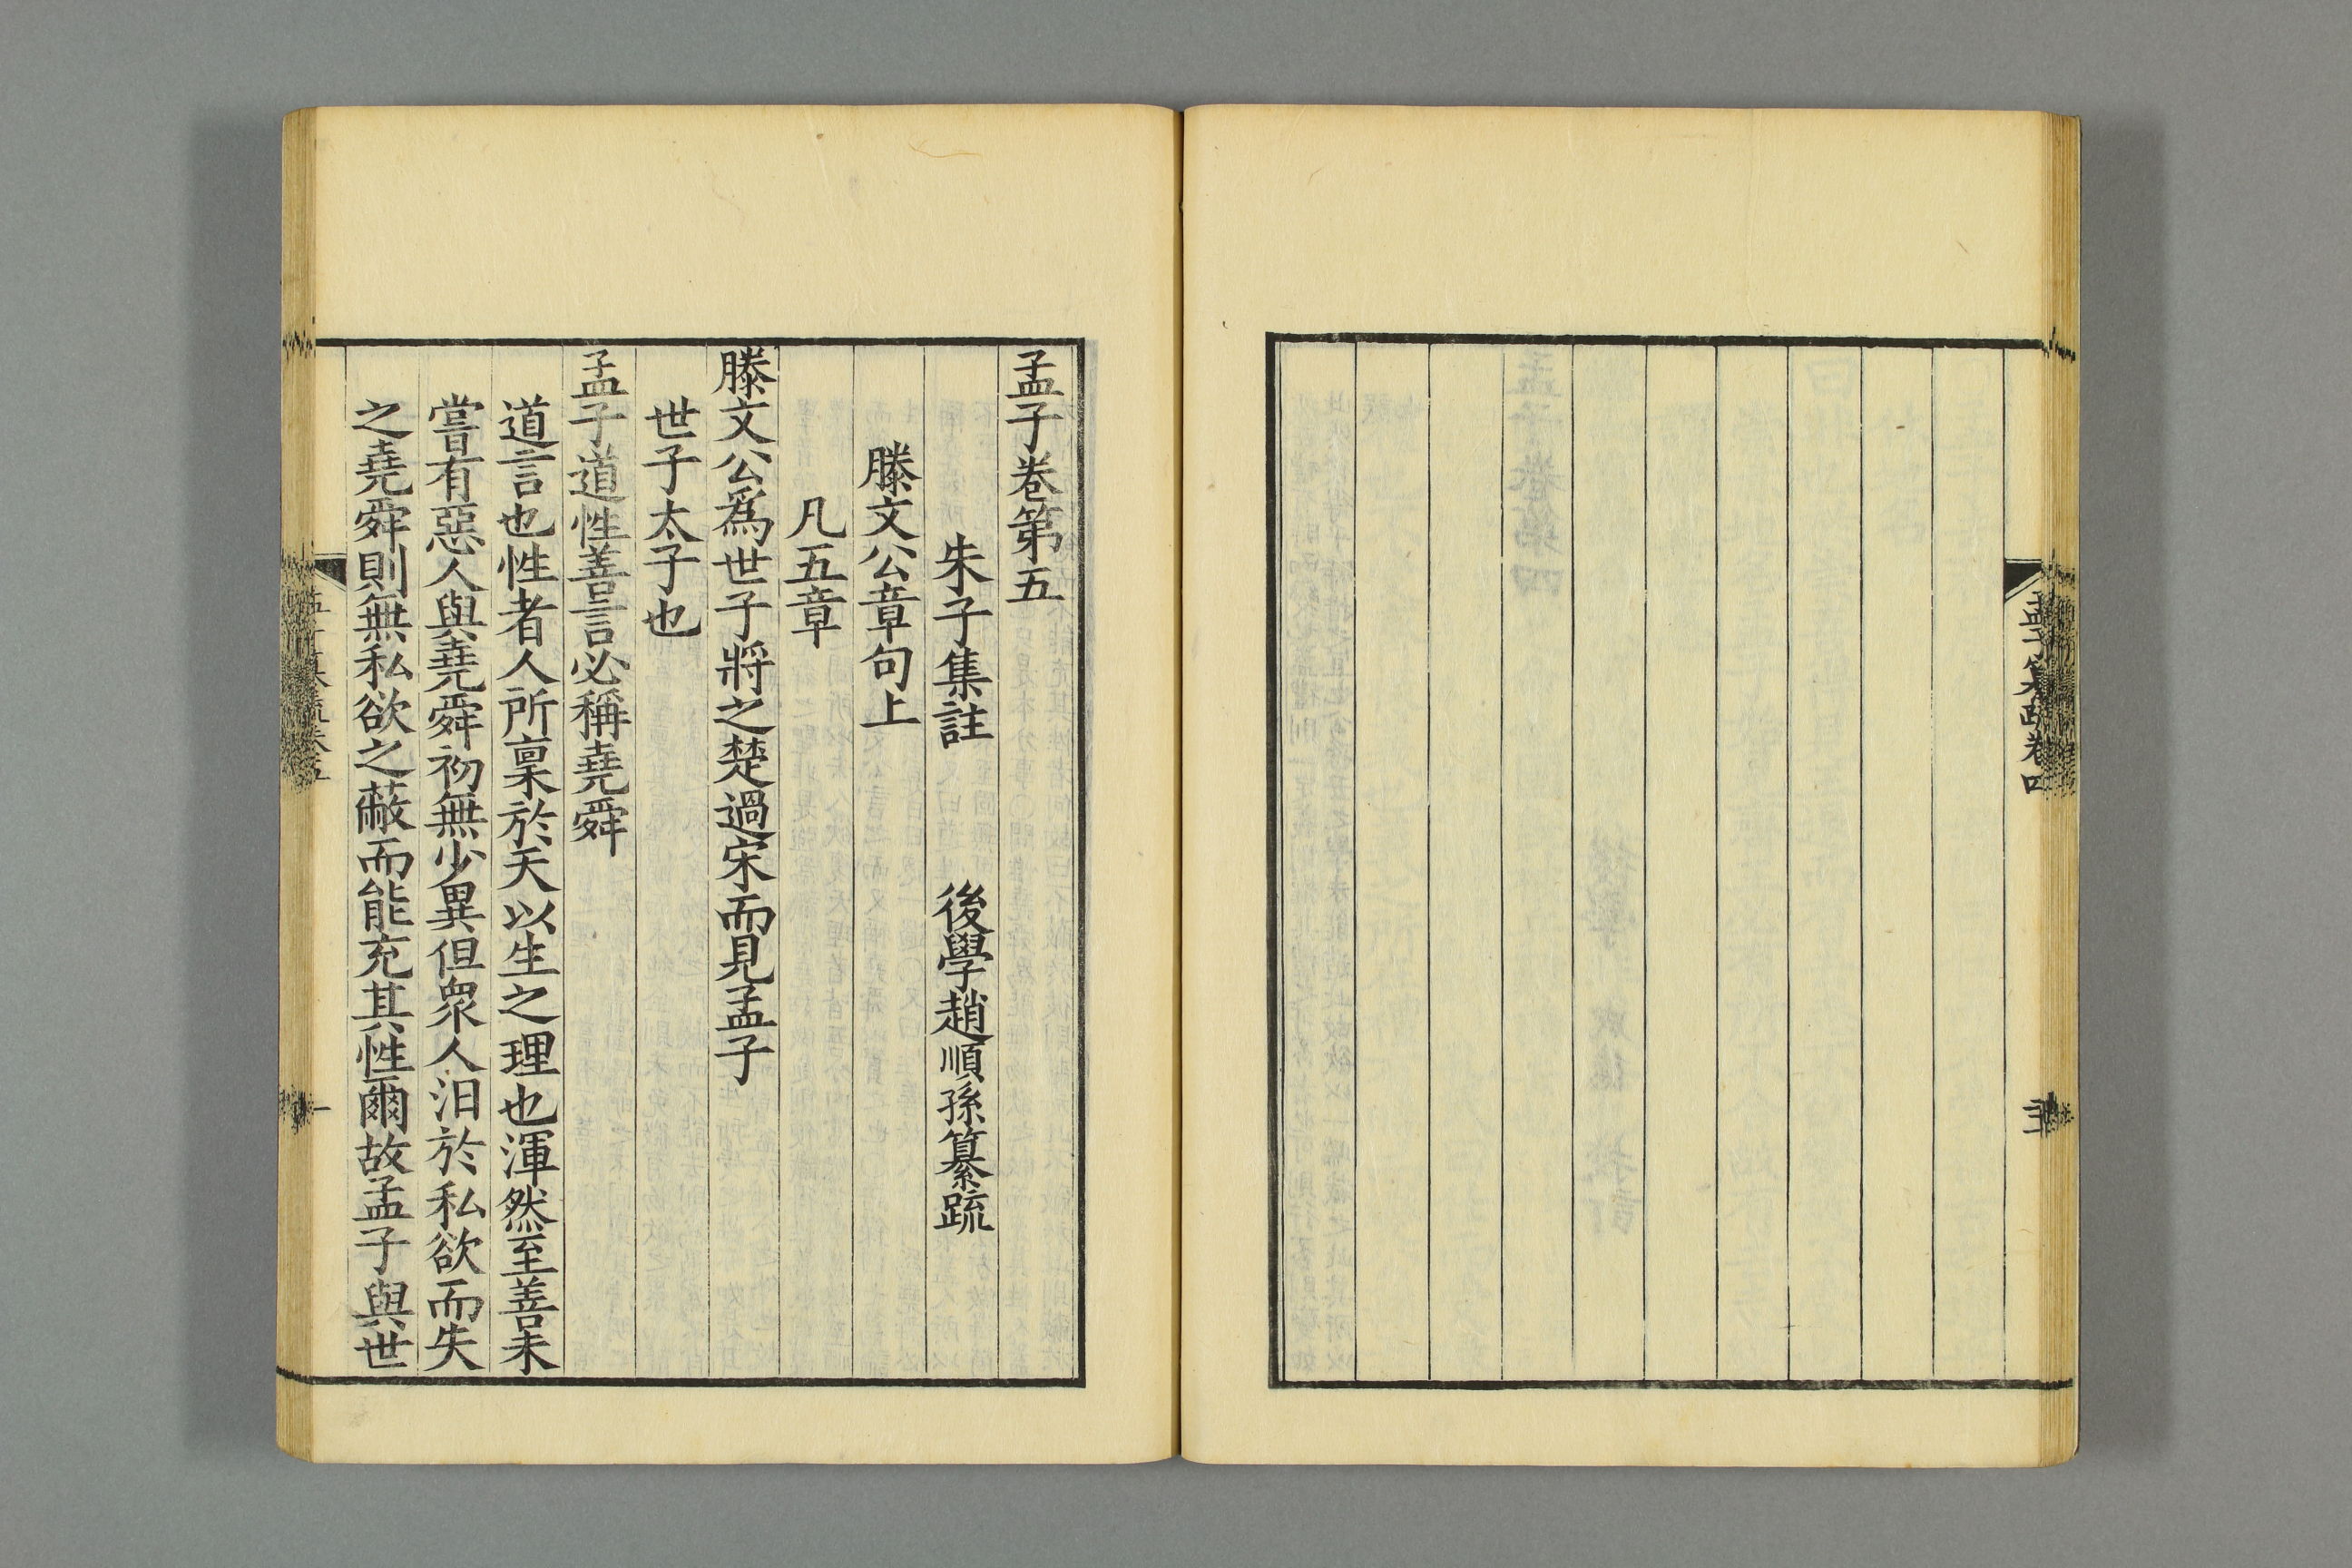 孟子纂䟽卷四
孟子卷第五
朱子集註　後學趙順孫纂䟽
滕文公章句上
凡五章
滕文公爲世子將之楚過宋而見孟子
世子太子也
孟子道性善言必稱堯舜
道言也性者人所稟於天以生之理也渾然至善未
嘗有惡人與堯舜初無少異但衆人汩於私欲而失
之堯舜則無私欲之蔽而能充其性爾故孟子與世